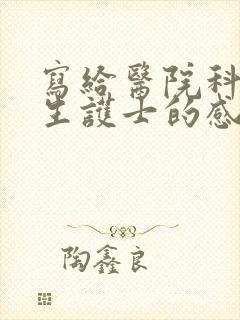 寫給醫院科
生護士的感
陶鑫良